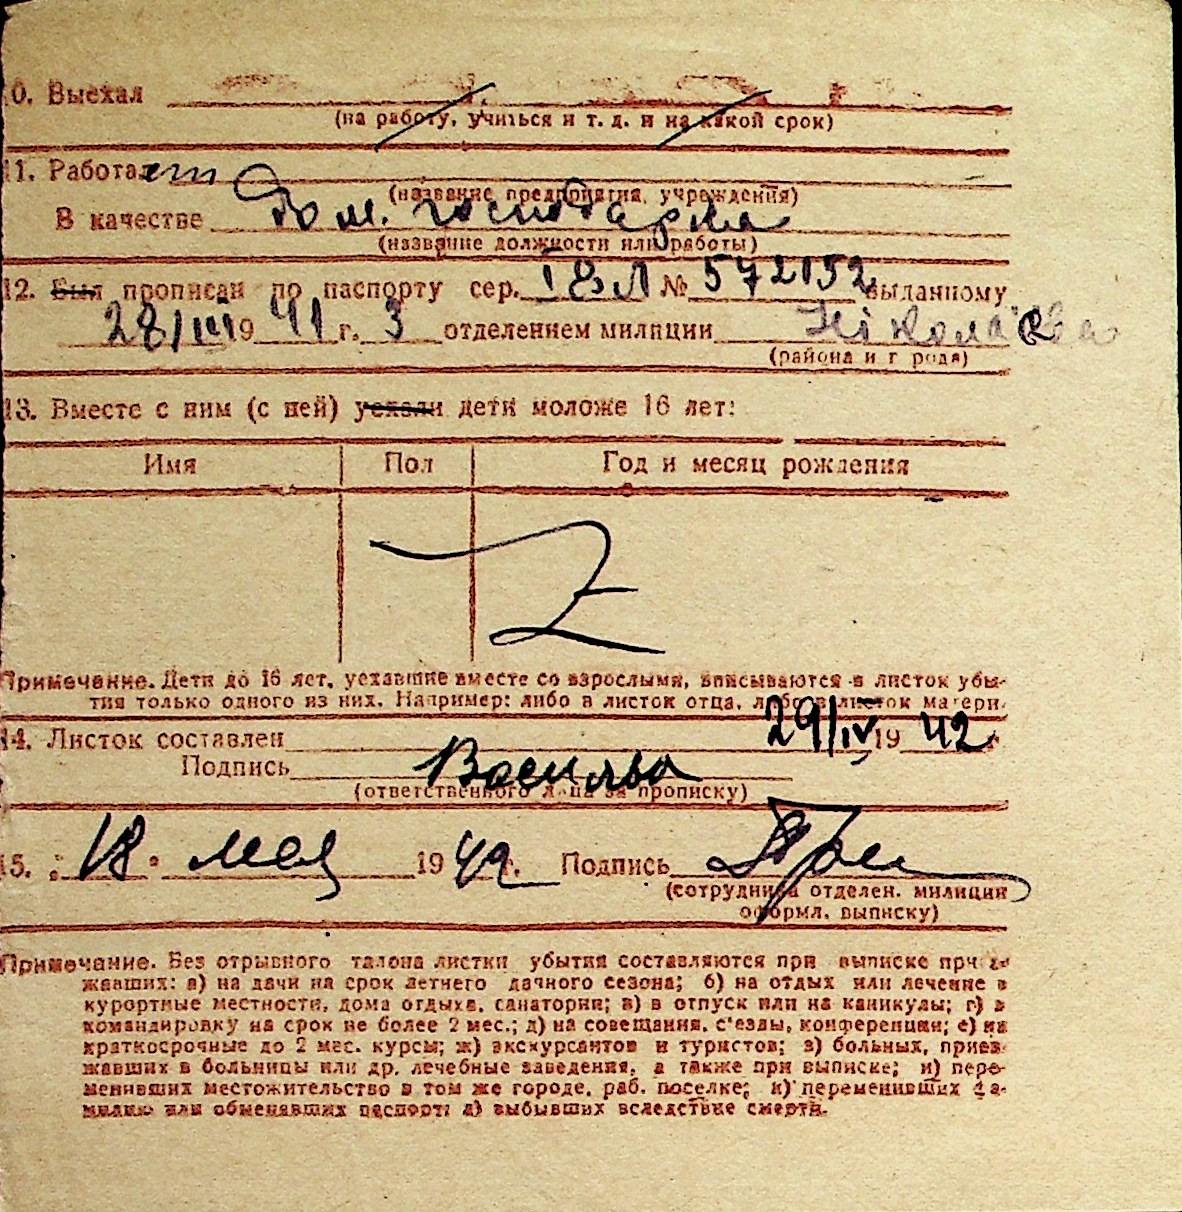 10. Выехал
(на работу, учиться и т. д. и на какой срок)
11. Работает
(название предприятия, учреждения)
В качестве Дом. господарка
(название должности или работы)
12. Был прописан по паспорту сер. І ВЛ № 572152 выданному
28/III 1941 г. 3 отделением милиции Ніколаєва
(района и города)
13. Вместе с ним (с ней) уехали дети моложе 16 лет:
Имя Пол Год и месяц рождения
Примечание. Дети до 16 лет, уехавшие вместе со взрослыми, вписываются в листок убы-
тия только одного из них. Например: либо в листок отца, либо в листок матери.
14. Листок составлен 29/IV 1942
Подпись
(ответственного лица за прописку)
15. 18 мая 1942 г. Подпись
(сотрудника отделен. милиции
оформл. выписку)
Примечание. Без отрывного талона листки убытия составляются при выписке приез-
жавших: а) на дачи на срок летнего дачного сезона; б) на отдых или лечение в
курортные местности, дома отдыха, санатории; в) в отпуск или на каникулы; г) в
командировку на срок не более 2 мес.; д) на совещания, с'езды, конференции; е) на
краткосрочные до 2 мес. курсы; ж) экскурсантов и туристов; з) больных, приез-
жавших в больницы или др. лечебные заведения, а также при выписке; и) пере-
менивших местожительство в том же городе, раб. поселке; к) переменивших фа-
милию или обменявших паспорт; л) выбывших вследствие смерти.